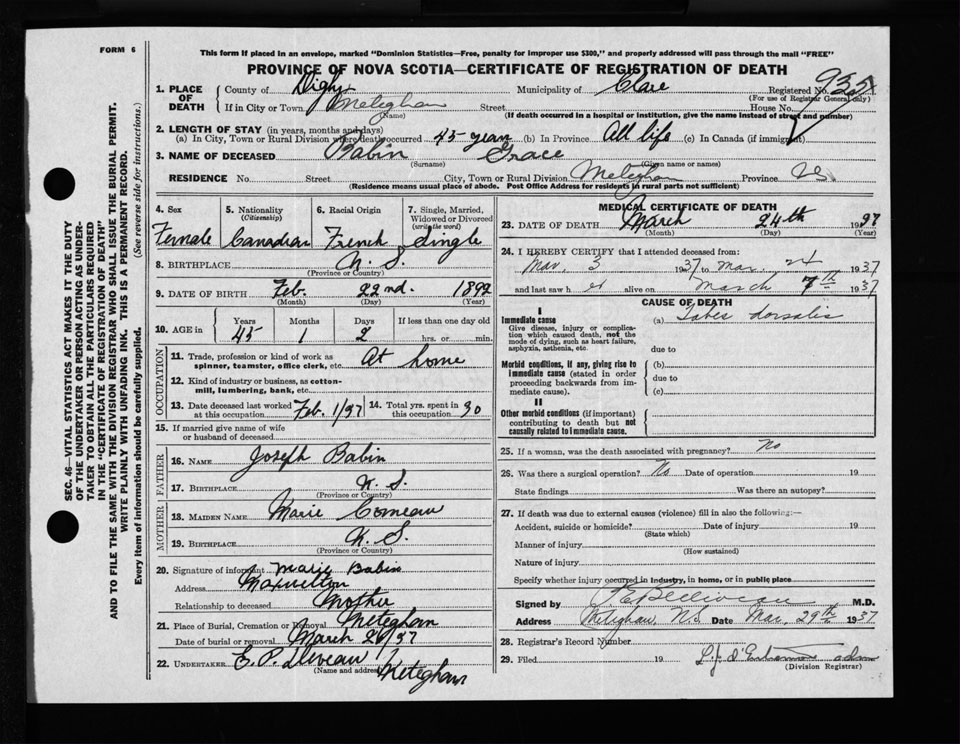 FORM 6
This form if placed in an envelope, marked "Dominion Statistics—Free, penalty for improper use $300," and properly addressed will pass through the mail "FREE"
PROVINCE OF NOVA SCOTIA—CERTIFICATE OF REGISTRATION OF DEATH
1. PLACE OF DEATH
County of Digby Municipality of Clare Registered No. 935
(For use of Registrar General only)
If in City or Town Meteghan Street House No.
(Name) (If death occurred in a hospital or institution, give the name instead of street and number)
2. LENGTH OF STAY (in years, months and days)
(a) In City, Town or Rural Division where death occurred 45 years (b) In Province All life (c) In Canada (if immigrant)
3. NAME OF DECEASED Babin Grace
(Surname) (Given name or names)
RESIDENCE No. Street City, Town or Rural Division Meteghan Province
(Residence means usual place of abode. Post Office Address for residents in rural parts not sufficient)
4. Sex Female
5. Nationality (Citizenship) Canadian
6. Racial Origin French
7. Single, Married, Widowed or Divorced (write the word) Single
8. BIRTHPLACE N. S.
(Province or Country)
9. DATE OF BIRTH Feb. 22nd. 1892
(Month) (Day) (Year)
10. AGE in Years 45 Months 1 Days 2 If less than one day old hrs. or min.
OCCUPATION
11. Trade, profession or kind of work as spinner, teamster, office clerk, etc. At home
12. Kind of industry or business, as cotton-mill, lumbering, bank, etc.
13. Date deceased last worked at this occupation Feb. 1/37 14. Total yrs. spent in this occupation 30
15. If married give name of wife or husband of deceased
FATHER
16. NAME Joseph Babin
17. BIRTHPLACE N. S.
(Province or Country)
MOTHER
18. MAIDEN NAME Marie Comeau
19. BIRTHPLACE N. S.
(Province or Country)
20. Signature of informant Marie Babin
Address
Relationship to deceased Mother
21. Place of Burial, Cremation or Removal Meteghan
Date of burial or removal March 26/37
22. UNDERTAKER E. P. Meteghan
(Name and address)
MEDICAL CERTIFICATE OF DEATH
23. DATE OF DEATH March 24th 1937
(Month) (Day) (Year)
24. I HEREBY CERTIFY that I attended deceased from:
Mar. 3 1937 to Mar. 24 1937
and last saw her alive on March 1937
CAUSE OF DEATH
I
Immediate cause (a) Tabes dorsalis
Give disease, injury or complication which caused death, not the mode of dying, such as heart failure, asphyxia, asthenia, etc.
due to
Morbid conditions, if any, giving rise to immediate cause (stated in order proceeding backwards from immediate cause).
(b)
due to
(c)
II
Other morbid conditions (if important) contributing to death but not causally related to immediate cause.
25. If a woman, was the death associated with pregnancy? No
26. Was there a surgical operation? No Date of operation 19
State findings Was there an autopsy?
27. If death was due to external causes (violence) fill in also the following:—
Accident, suicide or homicide? Date of injury 19
(State which)
Manner of injury
(How sustained)
Nature of injury
Specify whether injury occurred in industry, in home, or in public place
Signed by P E Belliveau M.D.
Address Meteghan, N.S. Date Mar. 29th 1937
28. Registrar's Record Number
29. Filed 19
(Division Registrar)
SEC. 46—VITAL STATISTICS ACT MAKES IT THE DUTY
OF THE UNDERTAKER OR PERSON ACTING AS UNDERTAKER
TO OBTAIN ALL THE PARTICULARS REQUIRED
IN THE "CERTIFICATE OF REGISTRATION OF DEATH"
AND TO FILE THE SAME WITH THE DIVISION REGISTRAR WHO SHALL ISSUE THE BURIAL PERMIT.
WRITE PLAINLY WITH UNFADING INK. THIS IS A PERMANENT RECORD.
Every item of information should be carefully supplied. (See reverse side for instructions.)